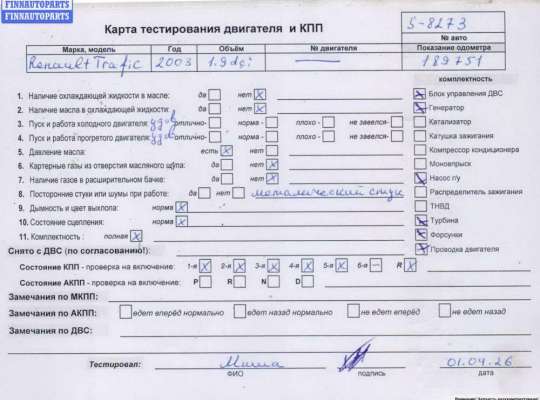 FINNAUTOPARTS
Карта тестирования двигателя и КПП
S-8273
№ авто
Марка, модель Год Объём № двигателя Показание одометра
Renault Trafic 2003 1.9 dci — 189751
комплектность
1. Наличие охлаждающей жидкости в масле: да нет X
Блок управления ДВС
2. Наличие масла в охлаждающей жидкости: да нет X
Генератор
3. Пуск и работа холодного двигателя: удов отлично- норма - плохо - не завелся-
Катализатор
4. Пуск и работа прогретого двигателя: удов отлично- норма - плохо - не завелся-
Катушка зажигания
5. Давление масла: есть X нет
Компрессор кондиционера
6. Картерные газы из отверстия масляного щупа: да нет X
Моновпрыск
7. Наличие газов в расширительном бачке: да нет X
Насос г/у
8. Посторонние стуки или шумы при работе: да нет металический стук
Распределитель зажигания
9. Дымность и цвет выхлопа: норма X
ТНВД
10. Состояние сцепления: норма X
Турбина
11. Комплектность : полная X
Форсунки
Проводка двигателя
Снято с ДВС (по согласованию!):
Состояние КПП - проверка на включение: 1-я X 2-я X 3-я X 4-я X 5-я X 6-я — R X
Состояние АКПП - проверка на включение: P R N D
Замечания по МКПП:
Замечания по АКПП: едет вперёд нормально едет назад нормально не едет вперёд не едет назад
Замечания по ДВС:
Тестировал: Миша 01.04.26
ФИО подпись дата